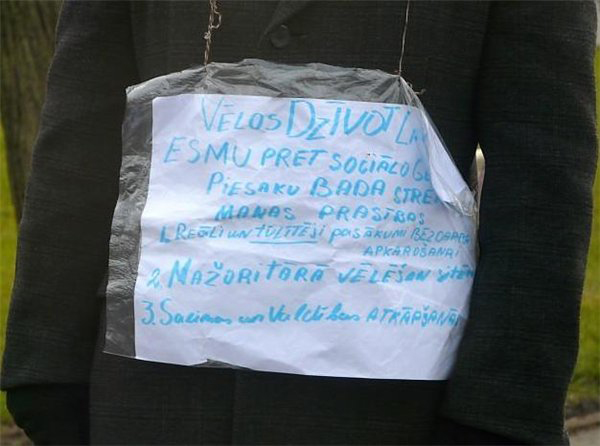 VĒLOS DZĪVOT
ESMU PRET SOCIĀLO
PIESAKU BADA
MANAS PRASĪBAS
1. REĀLI UN TŪLĪTĒJI pasākumi BEZDARBA
APKAROŠANAI
2. MAŽORITĀRĀ VĒLĒŠAN
3. Saeimas un Valdības ATKĀPŠANĀS